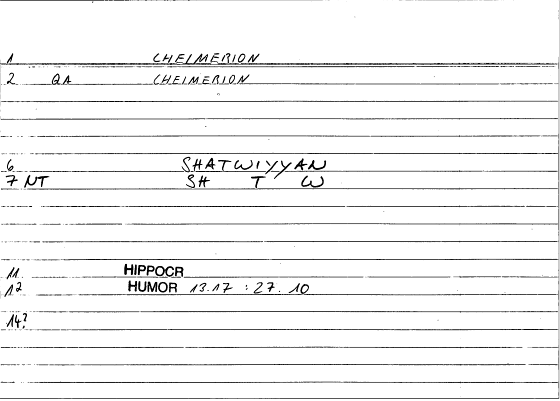 1 CHEIMERION
2 QA CHEIMERION
6 SHATWIYYAN
7 NT SH T W
11 HIPPOCR
12 HUMOR 13.17 : 27. 10
14?